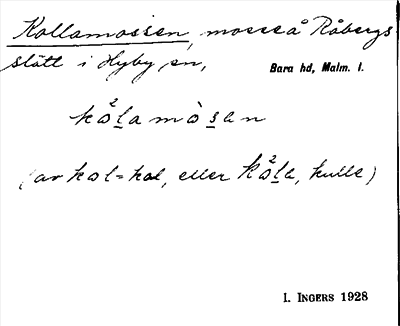 Kollamossen, mosse å Råbergs
slätt i Hyby sn,
Bara hd, Malm. l.
kålamòsan
(av kol = kol, eller kåla, kulle)
I. INGERS 1928